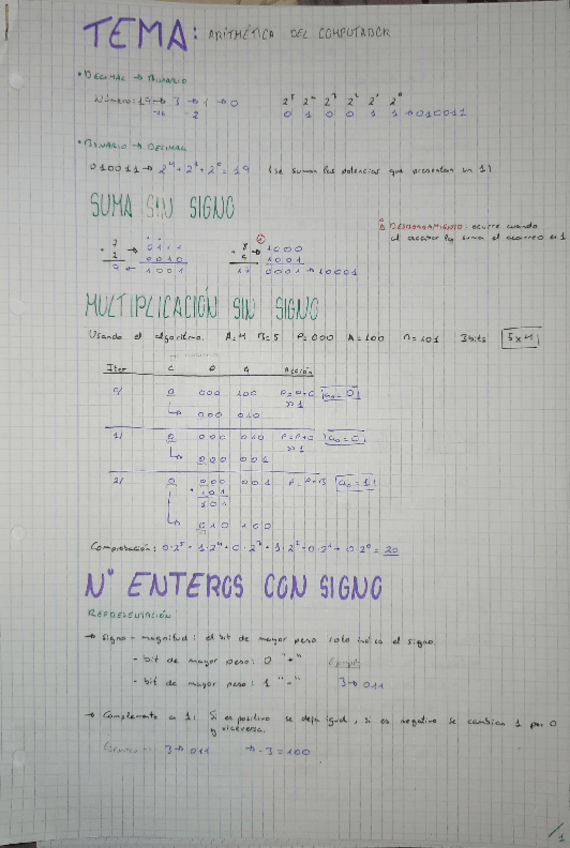 TEMA: ARITMÉTICA DEL COMPUTADOR
• DECIMAL → BINARIO
Número: 19 → 3 → 1 → 0
-16 -2
2⁵ 2⁴ 2³ 2² 2¹ 2⁰
0 1 0 0 1 1 → 010011
• BINARIO → DECIMAL
010011 → 2⁴ + 2¹ + 2⁰ = 19 (se suman las potencias que presentan un 1)
SUMA SIN SIGNO
DESBORDAMIENTO: ocurre cuando
al acabar la suma el acarreo es 1
7 → 0111
+ 2 0010
9 ← 1001
8 → 1000
+ 9 1001
17 0001 → 10001
MULTIPLICACIÓN SIN SIGNO
Usando el algoritmo. A=4 B=5 P=000 A=100 B=101 3bits 5x4
Iter C P A Acción
0/ 0 000 100 P=P+0 a₀=0
>>1
000 010
1/ 0 000 010 P=P+0 a₀=0
>>1
0 000 001
2/ 0 000 001 P=P+B a₀=1
+ 101
101
0 010 100
Comprobación: 0·2⁵+1·2⁴+0·2³+1·2²+0·2¹+0·2⁰=20
Nº ENTEROS CON SIGNO
REPRESENTACIÓN
→ Signo-magnitud: el bit de mayor peso solo indica el signo.
- bit de mayor peso: 0 "+" Ejemplo
- bit de mayor peso: 1 "-" 3→ 011
→ Complemento a 1: Si es positivo se deja igual, si es negativo se cambian 1 por 0
y viceversa.
3→ 011 → -3=100
/1